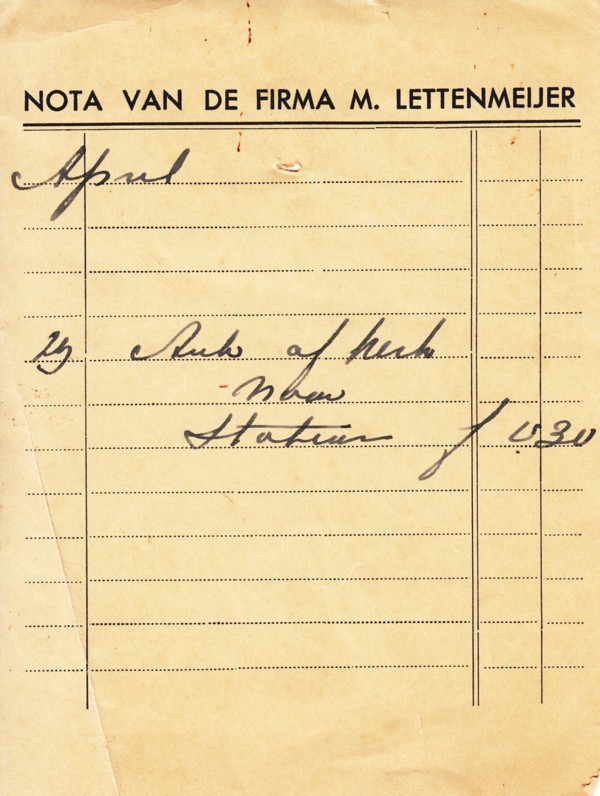 NOTA VAN DE FIRMA M. LETTENMEIJER
April
29 Auto af Kerk
naar
Station f 0 30